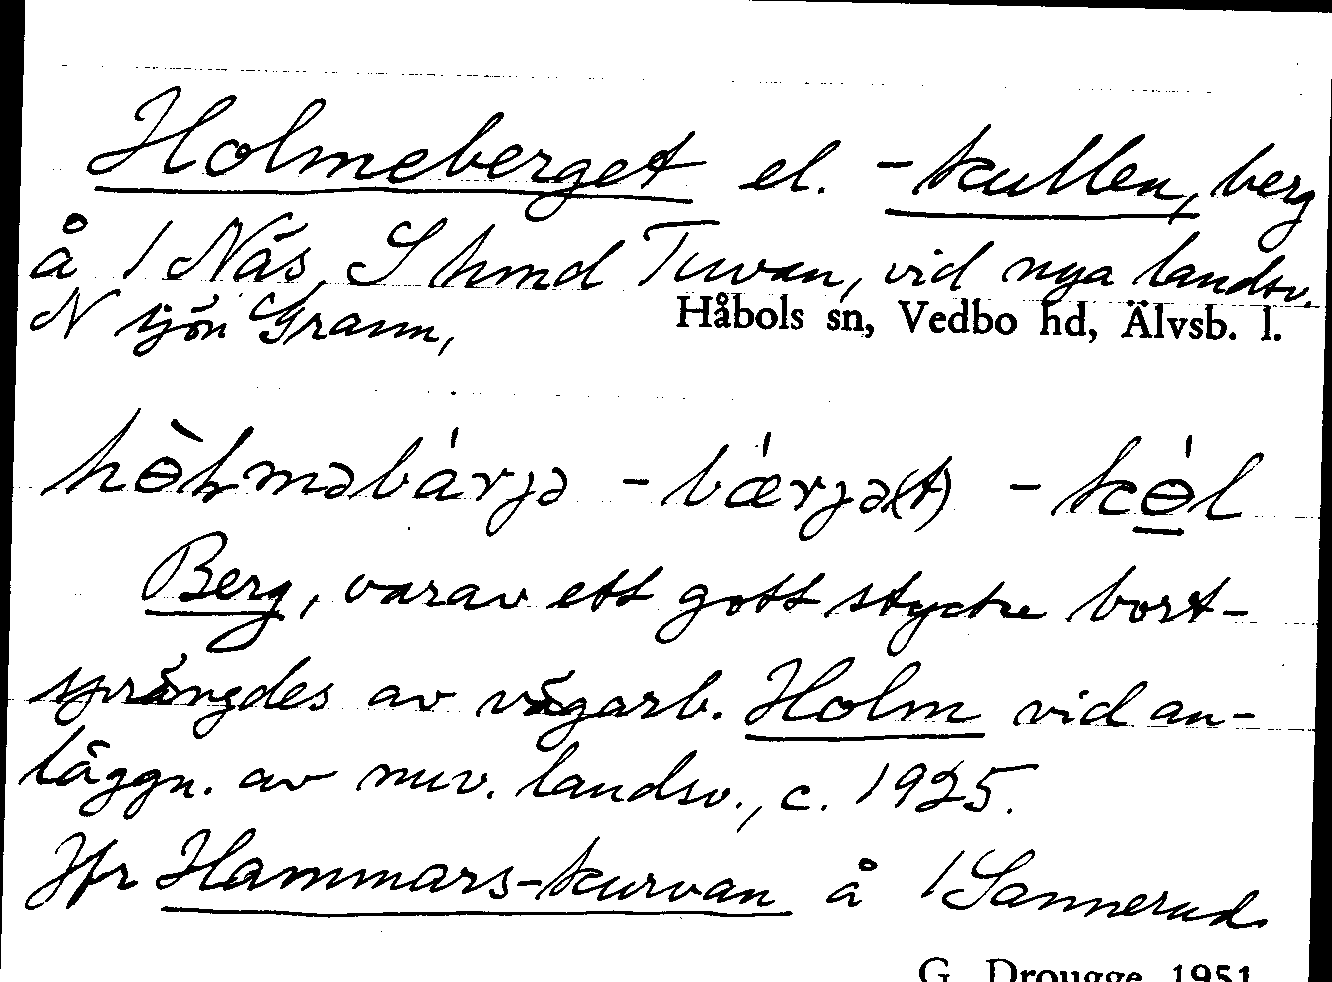 Holmeberget el. -kullen, berg
å 1 Näs, S hmd Tuvan, vid nya landsv.
N sjön Grann,
Håbols sn, Vedbo hd, Älvsb. l.
hɵ̀lməbárjə -bǽrjə(t) -kɵ́l
Berg, varav ett gott stycke bort-
sprängdes av vägarb. Holm vid an-
läggn. av nuv. landsv., c. 1925.
Jfr Hammars-kurvan å 1 Sannerud
G. Drougge 1951